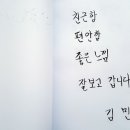 친근함
편안함
좋은 느낌
잘보고 갑니다
김 민